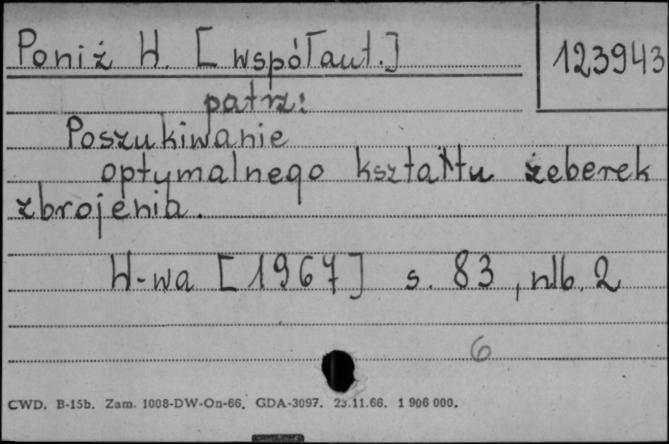 Poniż W. [współaut.]
123943
patrz:
Poszukiwanie
optymalnego kształtu żeberek
zbrojenia.
W-wa [1967] s. 83, nlb. 2
6
CWD. B-15b. Zam. 1008-DW-On-66. GDA-3097. 23.11.66. 1 906 000.